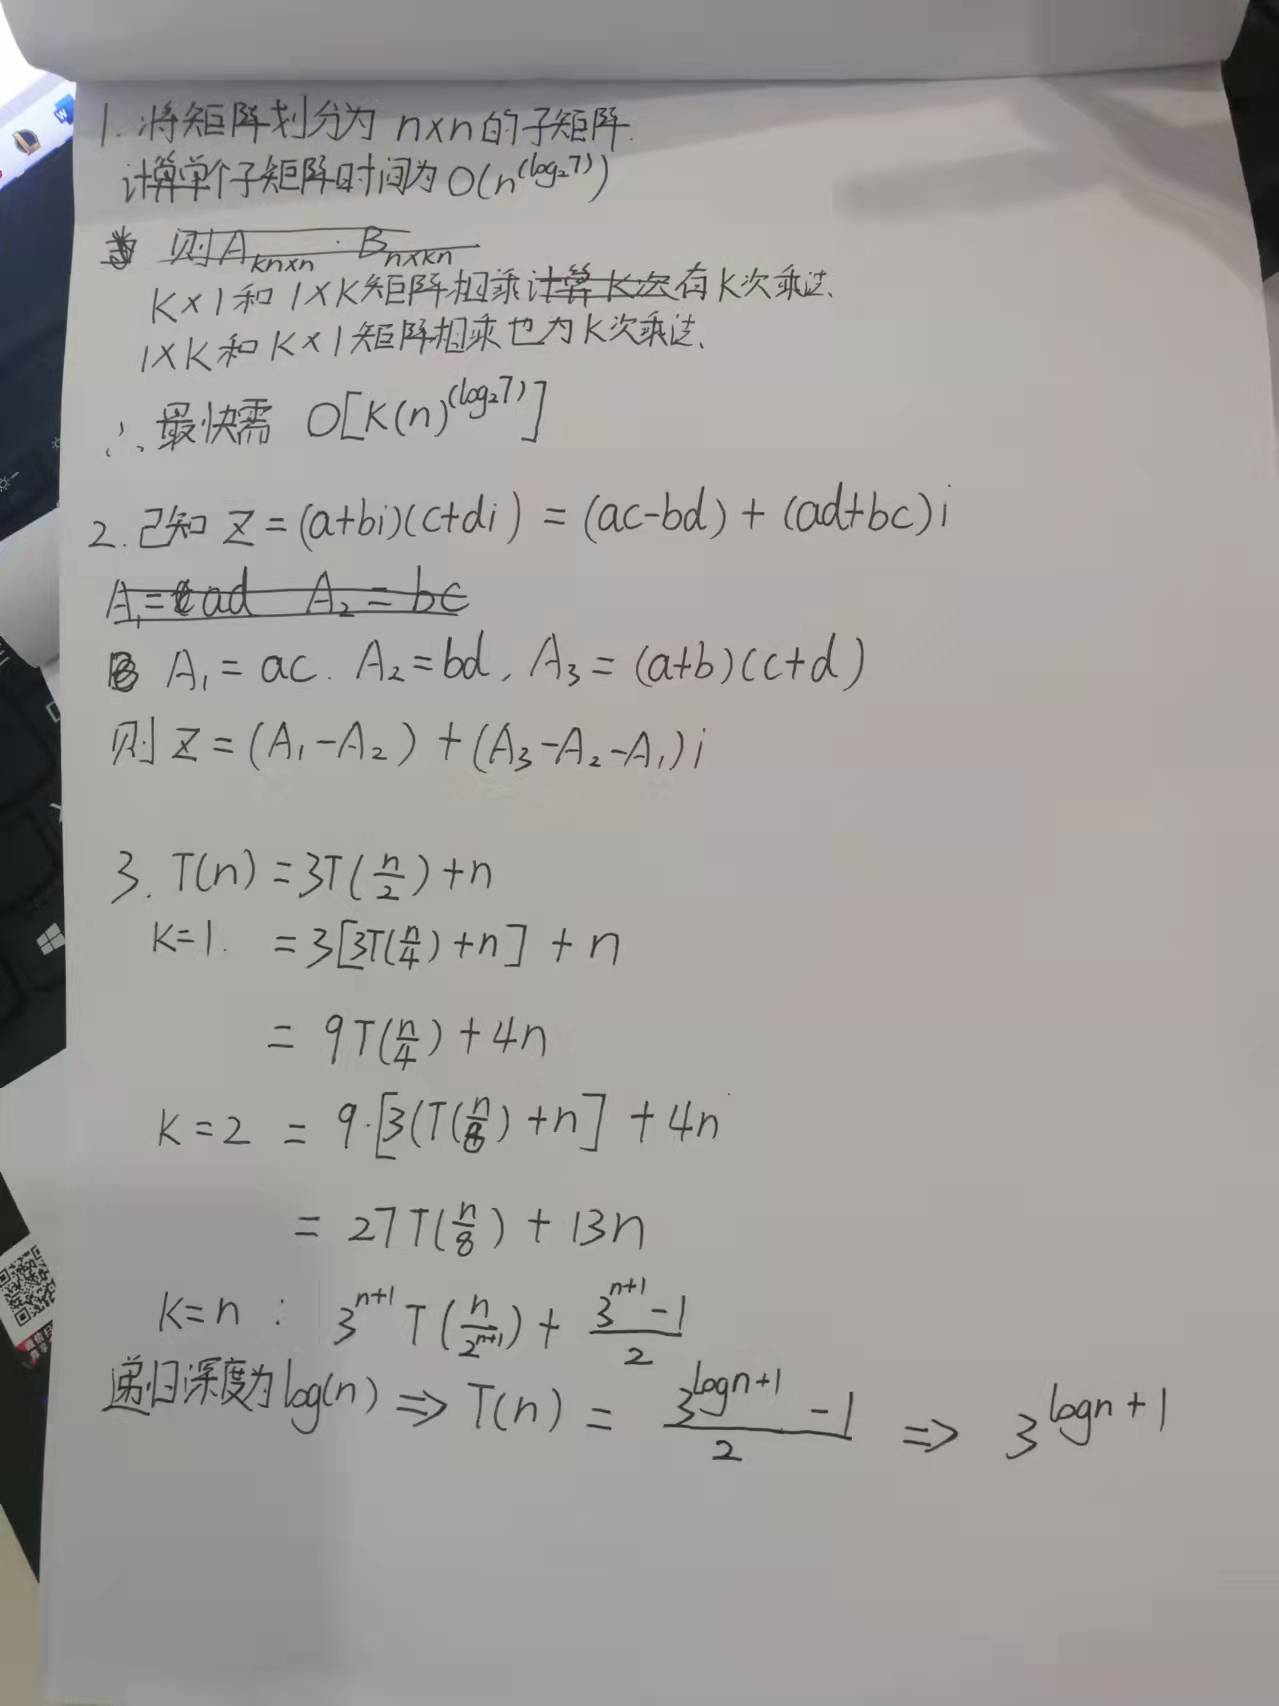 1. 将矩阵划分为 n×n的子矩阵.
计算单个子矩阵时间为 O(n^(log₂7))
则A kn×n · B n×kn
K×1和 1×K矩阵相乘计算K次有K次乘法.
1×K和 K×1矩阵相乘也为K次乘法.
∴ 最快需 O[K(n)^(log₂7)]
2. 已知 Z=(a+bi)(c+di) = (ac-bd) + (ad+bc)i
A₁= ad A₂ = bc
A₁ = ac. A₂=bd, A₃=(a+b)(c+d)
则 Z=(A₁-A₂) + (A₃-A₂-A₁)i
3. T(n) = 3T(n/2)+n
K=1. = 3[3T(n/4)+n] + n
= 9T(n/4) + 4n
K=2 = 9·[3(T(n/8)+n] + 4n
= 27T(n/8) + 13n
K=n : 3^(n+1) T(n/2^(n+1)) + (3^(n+1) -1)/2
递归深度为log(n) ⇒ T(n) = (3^(logn+1) -1)/2 ⇒ 3^(logn+1)